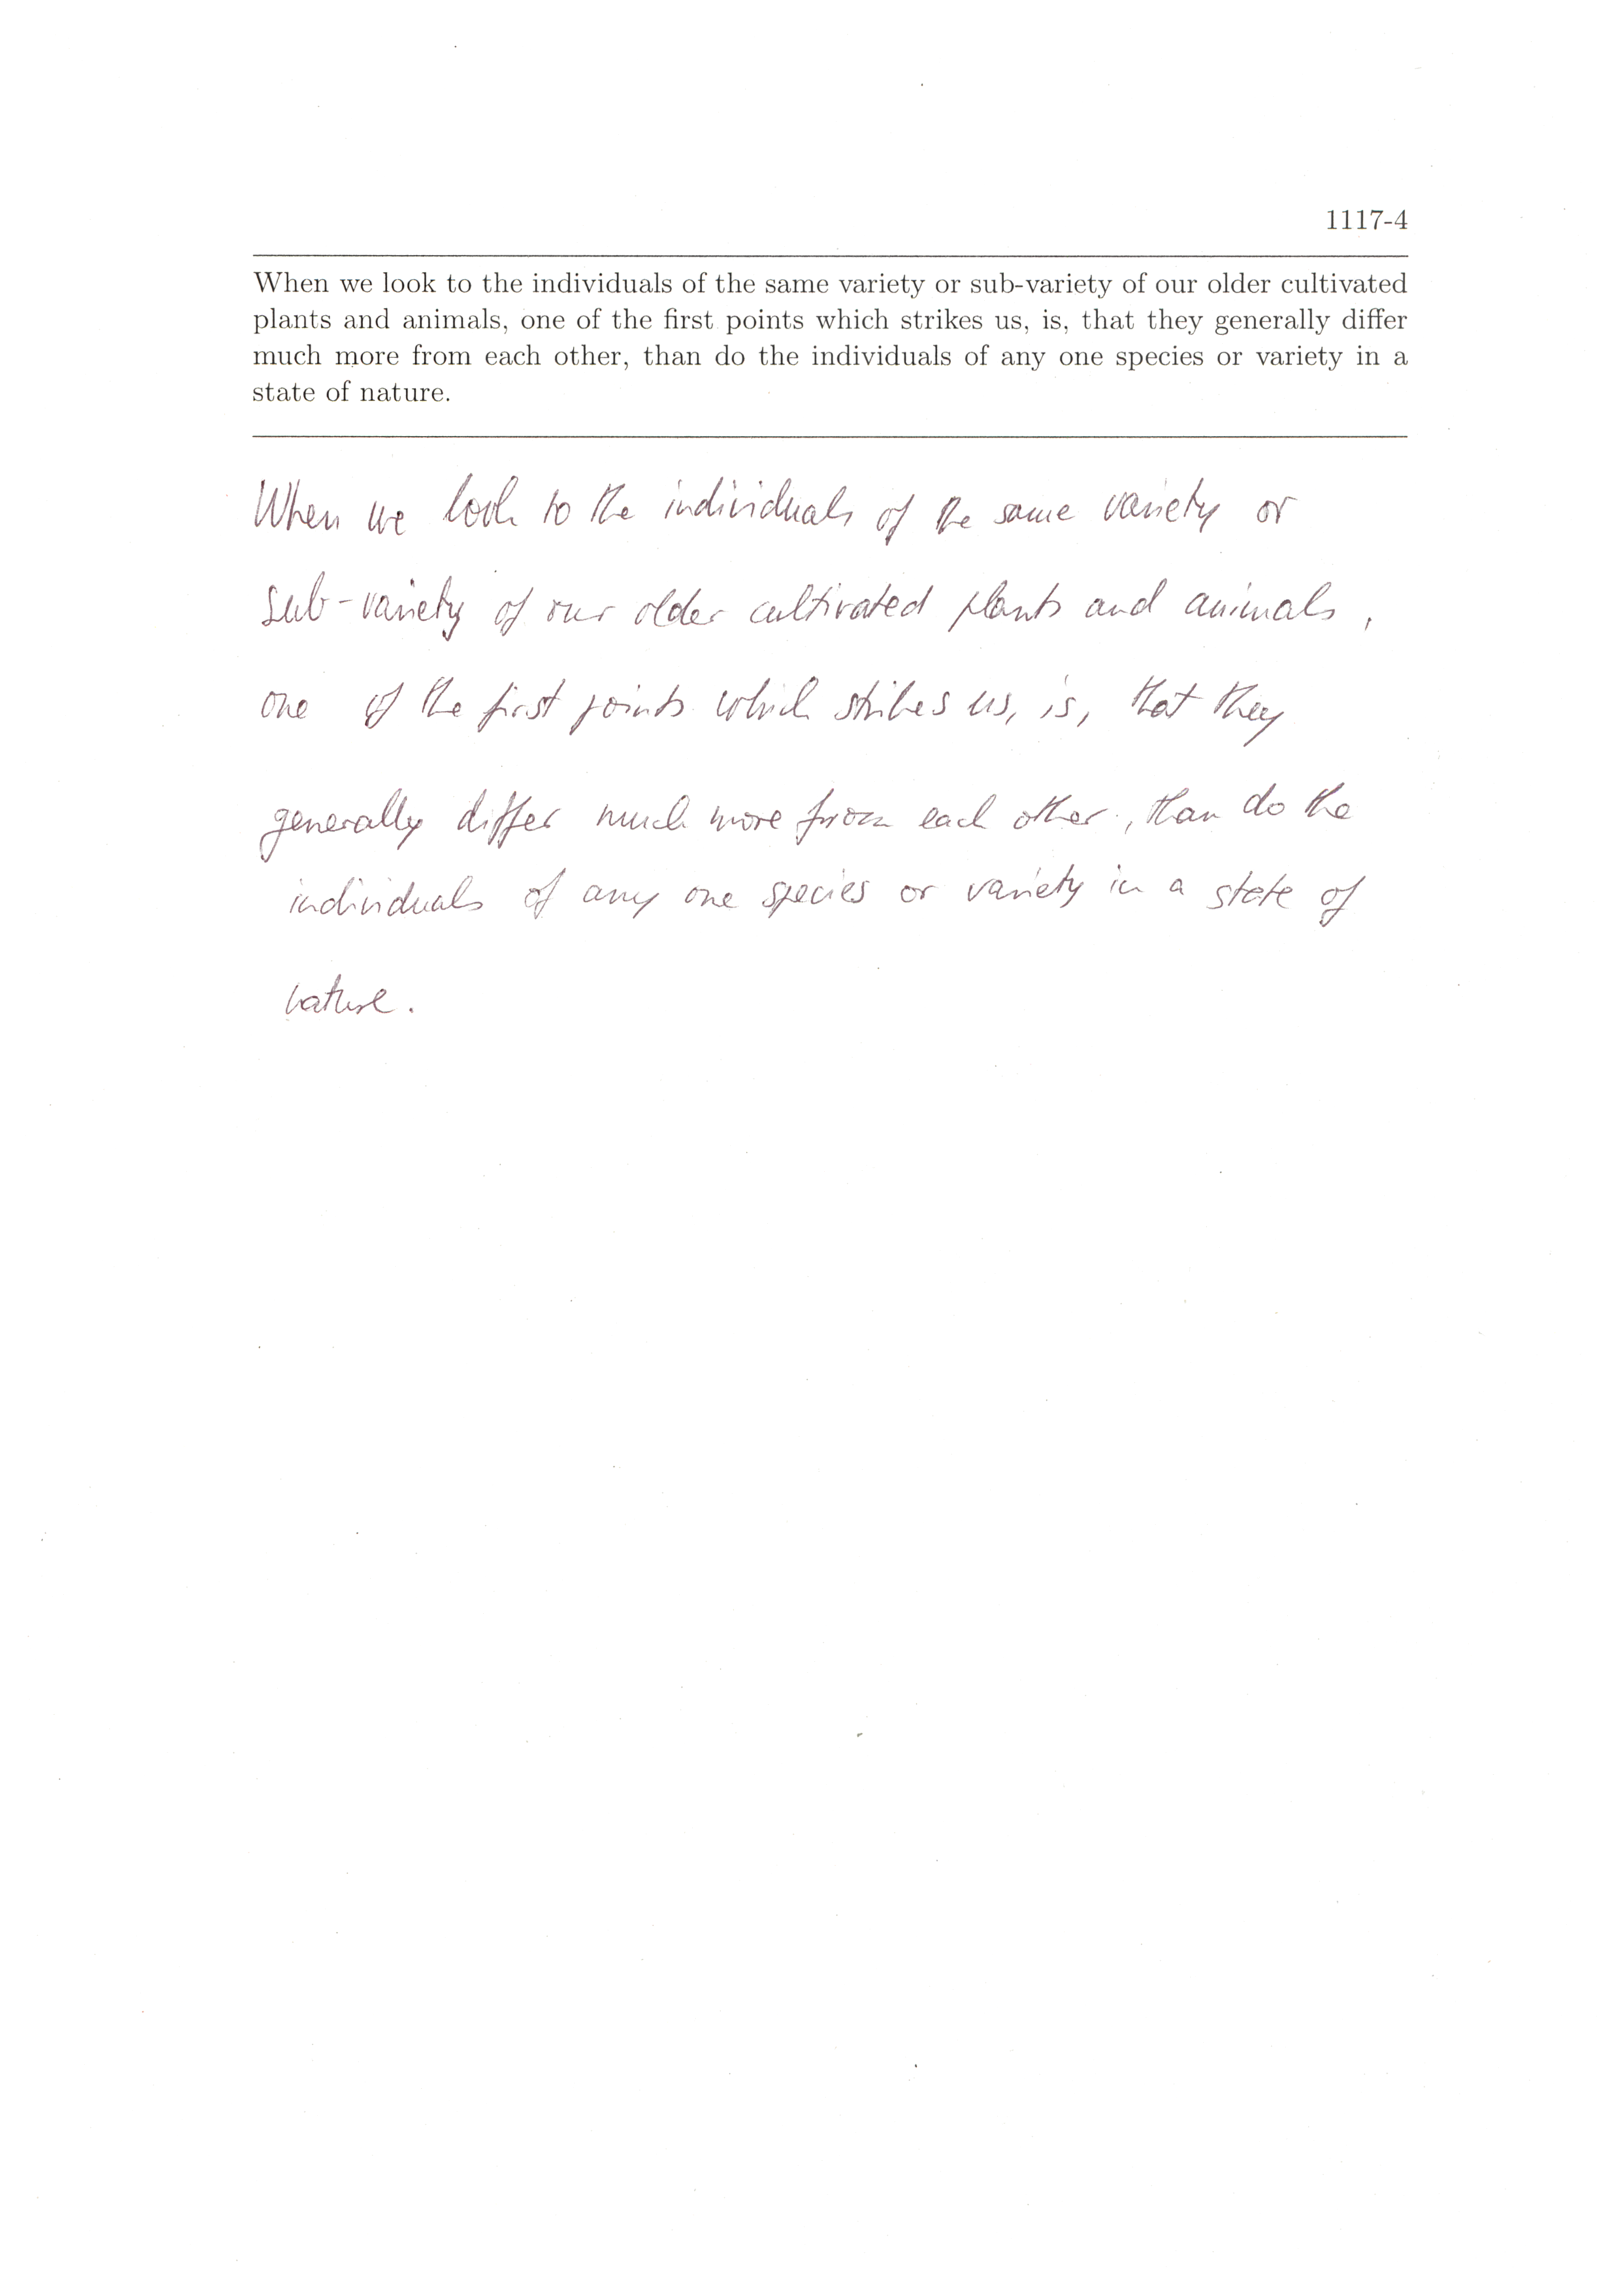 1117-4
When we look to the individuals of the same variety or sub-variety of our older cultivated
plants and animals, one of the first points which strikes us, is, that they generally differ
much more from each other, than do the individuals of any one species or variety in a
state of nature.
When we look to the individuals of the same variety or
sub-variety of our older cultivated plants and animals,
one of the first points which strikes us, is, that they
generally differ much more from each other, than do the
individuals of any one species or variety in a state of
nature.